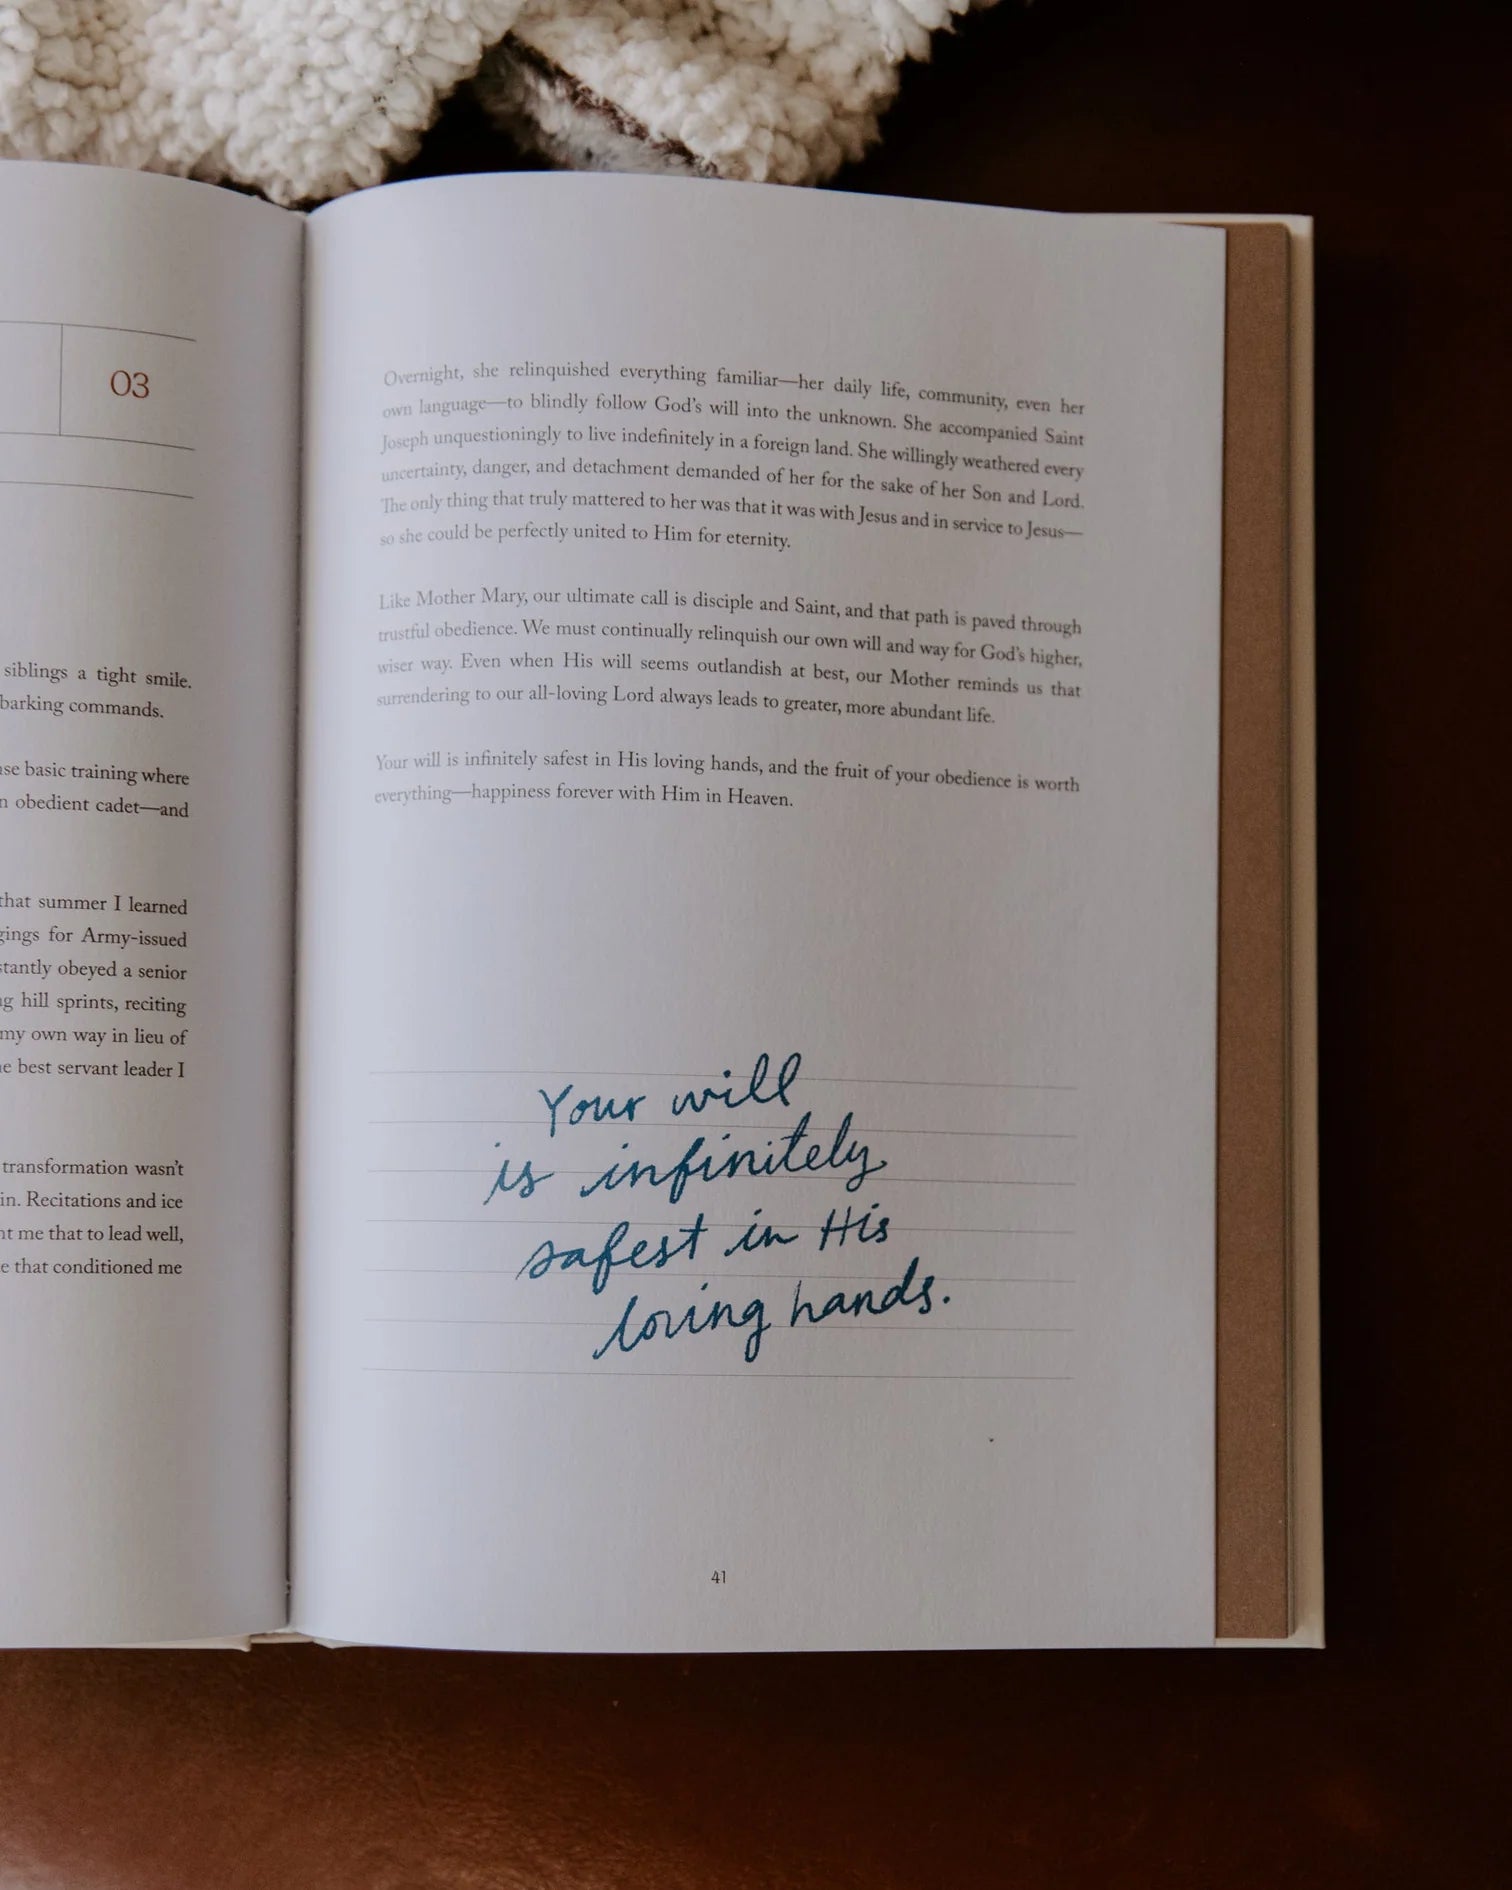 03
siblings a tight smile.
barking commands.
basic training where
obedient cadet—and
that summer I learned
for Army-issued
obeyed a senior
hill sprints, reciting
my own way in lieu of
best servant leader I
transformation wasn't
in. Recitations and ice
me that to lead well,
that conditioned me
Overnight, she relinquished everything familiar—her daily life, community, even her
own language—to blindly follow God's will into the unknown. She accompanied Saint
Joseph unquestioningly to live indefinitely in a foreign land. She willingly weathered every
uncertainty, danger, and detachment demanded of her for the sake of her Son and Lord.
The only thing that truly mattered to her was that it was with Jesus and in service to Jesus—
so she could be perfectly united to Him for eternity.
Like Mother Mary, our ultimate call is disciple and Saint, and that path is paved through
trustful obedience. We must continually relinquish our own will and way for God's higher,
wiser way. Even when His will seems outlandish at best, our Mother reminds us that
surrendering to our all-loving Lord always leads to greater, more abundant life.
Your will is infinitely safest in His loving hands, and the fruit of your obedience is worth
everything—happiness forever with Him in Heaven.
Your will
is infinitely
safest in His
loving hands.
41